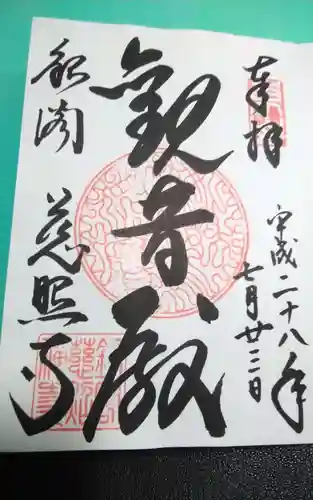 奉拝
平成二十八年
七月廿三日
觀音殿
銀閣
慈照寺